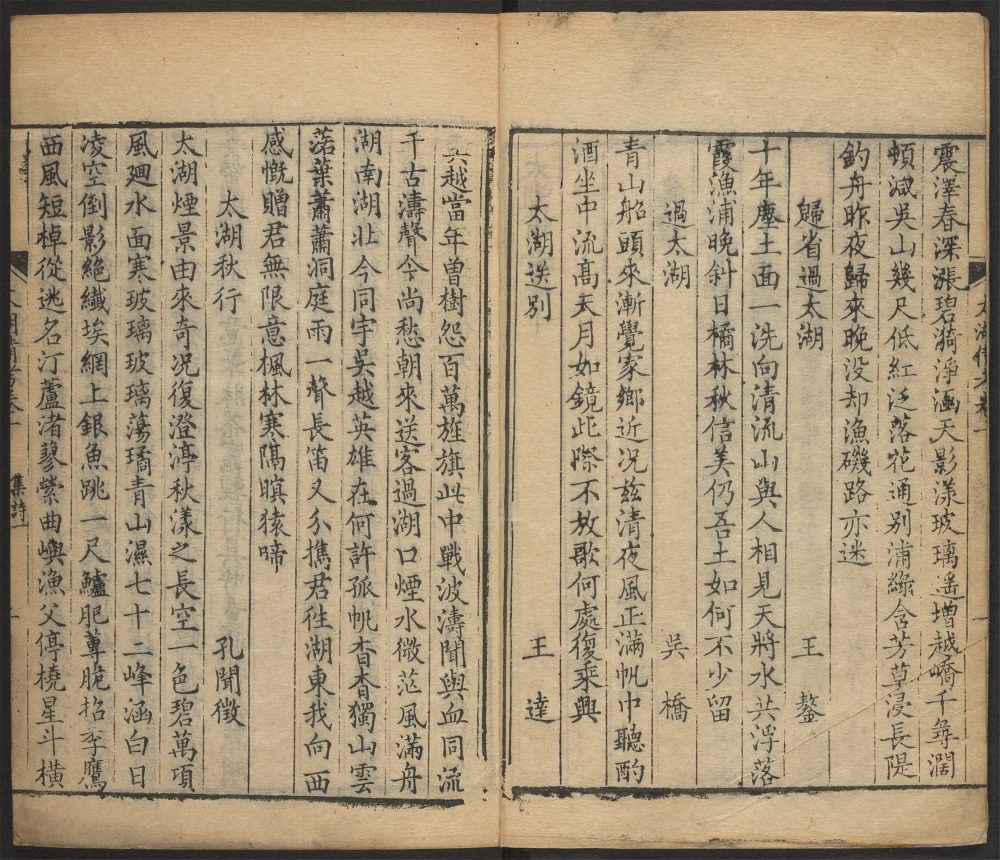 震澤春深漲碧漪淨涵天影漾玻璃遥增越嶠千尋濶
頓減吳山幾尺低紅泛落花通别浦綠含芳草浸長隄
釣舟昨夜歸來晚没却漁磯路亦迷
歸省過太湖　王鏊
十年塵土面一洗向清流山與人相見天將水共浮落
霞漁浦晚斜日橘林秋信美仍吾土如何不少留
過太湖　吳橋
青山船頭來漸覺家鄉近况兹清夜風正滿帆中聽酌
酒坐中流高天月如鏡此際不放歌何處復乘興
太湖送别　王達
吳越當年曾樹怨百萬旌旗此中戰波濤聞與血同流
千古濤聲今尚愁朝來送客過湖口煙水微茫風滿舟
湖南湖北今同宇吳越英雄在何許孤帆杳杳獨山雲
落葉蕭蕭洞庭雨一聲長笛又分携君徃湖東我向西
感慨贈君無限意楓林寒隔暝猿啼
太湖秋行　孔聞徴
太湖煙景由來奇况復澄渟秋漾之長空一色碧萬項
風廻水面寒玻璃玻璃蕩潏青山濕七十二峰涵白日
凌空倒影絶纖埃網上銀魚跳一尺鱸肥蓴脆招季鷹
西風短棹從逃名汀蘆渚蓼縈曲嶼漁父停橈星斗横
集詩